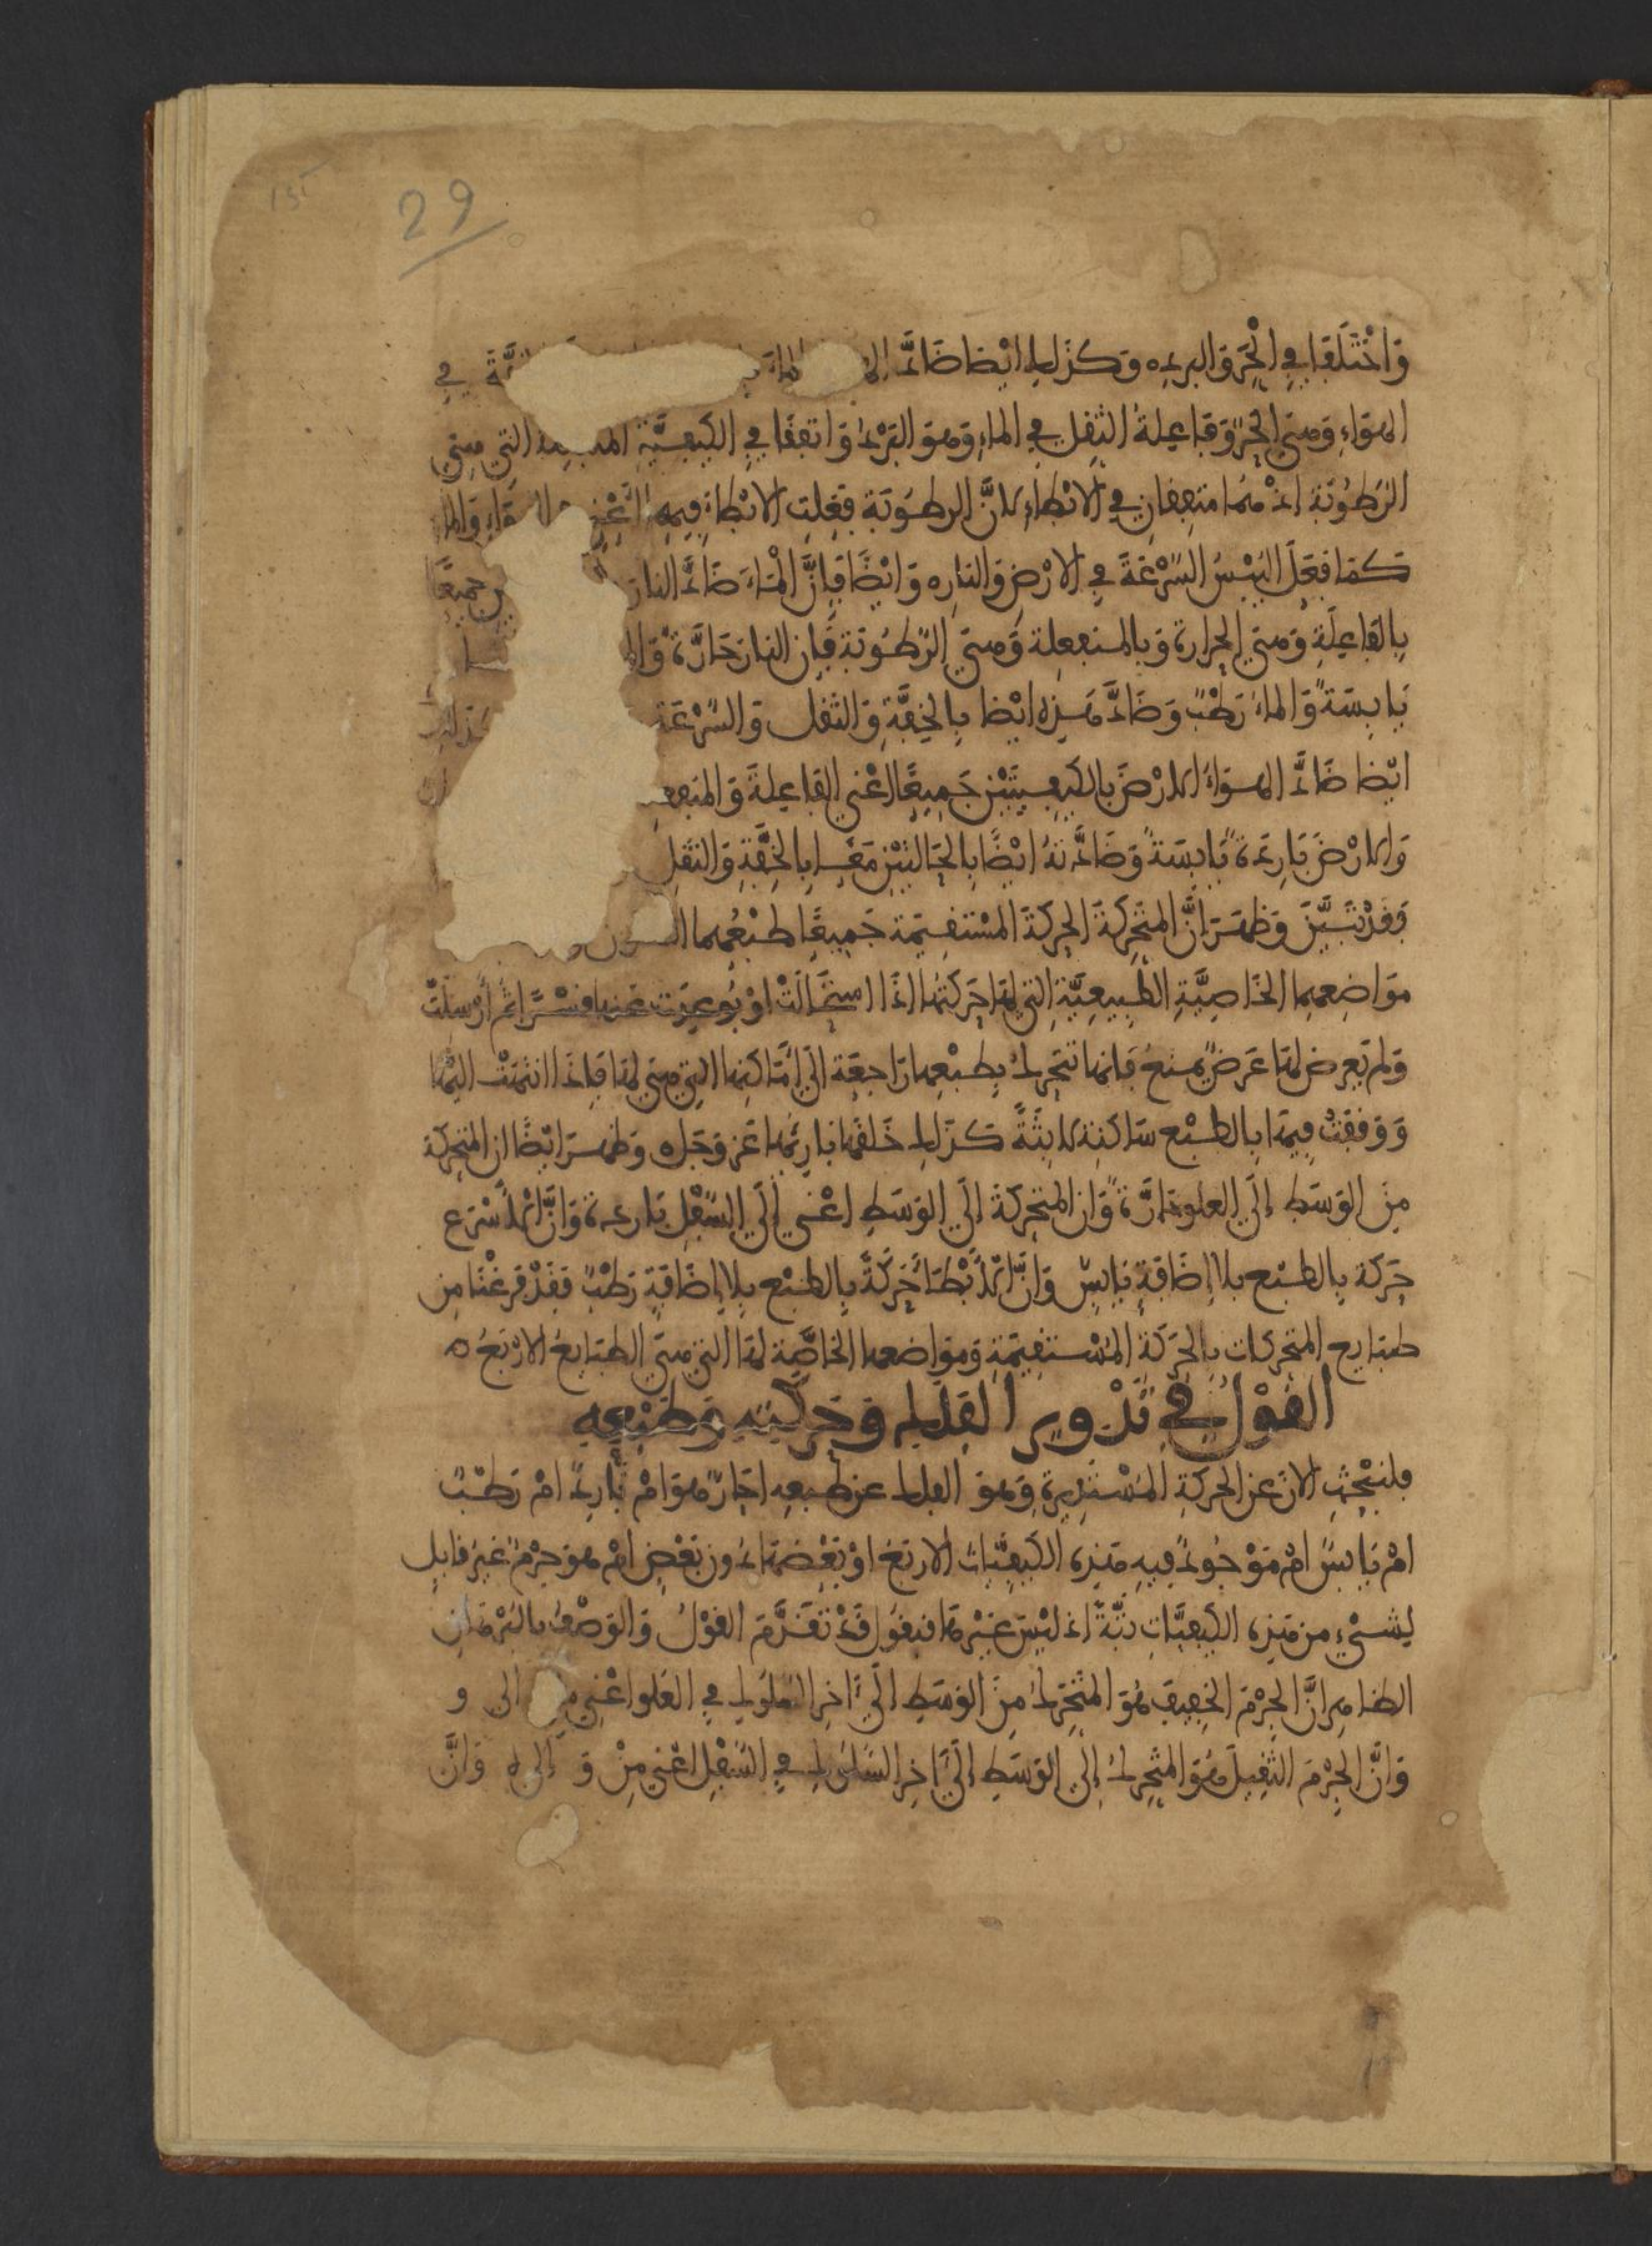 135
29
وَاخْتَلَفَا فِي الْحَرِّ وَالبرد ٥ وَكذَلك ايْضا ضَادَّ الماءَ فِي
الهوَاءِ وَهيَ الحَرُّ وَفَاعِلةُ الثِّقَلِ فِي الماءِ وَهوَ البَرْدُ وَاتفقَا فِي الكَيفِيَّةِ التِي هِيَ
الرُّطُوبَة اذْ هُمَا متفِقانِ فِي الابْطاءِ لانَّ الرطوبَة فعَلتِ الابْطاءَ فِيهِمَا اعْنِي وَالما
كمَا فعَلَ اليُبْسُ السُّرْعَةَ فِي الارْضِ وَالنارِ ٥ وَايْضًا فَإنَّ الْمَاءَ ضَادَّ النارَ جميعًا
بِالفَاعِلَةِ وَهيَ الحرارة وَبالمنفعِلةِ وَهيَ الرُّطُوبَة فَإن النارَ حَارَّةٌ وَال
يَابِسَةٌ وَالماءُ رَطْبٌ وَضَادَّ هَذِه ايْضا بِالخِفَّةِ وَالثقل وَالسُّرْعَة كَذلكَ
ايْضا ضَادَّ الهوَاءُ الارْضَ بالكَيفِيتَيْنِ جَمِيعًا اعْنِي الفَاعِلةَ وَالمنفع
وَالارْضَ بَارِدَةٌ يَابِسَةٌ وَضَادَّتهُ ايْضًا بِالحَالتَيْنِ مَعًا بِالخِفَّةِ وَالثقَلِ
فَقَدْ تبَيَّنَ وَظهَرَ انَّ المتحَرِّكَةَ الحرَكَةَ المُسْتقِيمَة جَميعًا طبْعُهما
مَوَاضِعهما الخَاصِّيَّةِ الطَّبِيعِيَّةِ التِي لهَا حَرَكَتُها اذَا اسْتحَالَتْ اوْ بُوعِدَت عَنها قَسْرًا ثمَّ أُرْسِلَتْ
وَلم يَعرِض لهَا عَرَضٌ يمنَعُ فَانهَا تتحَركُ بِطبْعِها رَاجِعَة الَى امَاكنِها التِي هِيَ لهَا فَإذَا انتهَتْ اليْهَا
وَوَقفتْ فِيهَا بِالطبْع سَاكنِة لابِثةً كذَلك خَلقَها بَارِئهَا عَز وَجَل ٥ وَظهرَ ايْضًا ان المتحَركة
مِنَ الوَسَطِ إلَى العلوِ حَارَّةٌ وَان المتحَركَةَ إلَى الوَسَطِ اعْنِي إلَى السُّفْلِ بَارِدَة وَانَّ الاسْرَع
حَرَكة بِالطبْع بلا اضَافَةٍ يَابِسٌ وَانَّ الابْطَأَ حَرَكةً بِالطبْع بِلا إضَافَةٍ رَطْبٌ فقَدْ فَرغْنَا مِن
طبَايع المتحَركات بِالحَرَكَة المُسْتقِيمَة وَمواضعها الخاصَّة لهَا التي هيَ الطبَايعُ الارْبَعُ ٥
القَوْلُ فِي تَدْوِيرِ الفَلَكِ وَحَرَكَتِهِ وَطَبْعِهِ
فلنبْحَثِ الانَ عَنِ الحركَةِ المُسْتَدِيرةِ وَهوَ الفلك عن طبعِهِ احَارٌّ هوَ امْ بَارِدٌ امْ رَطْبٌ
امْ يَابسٌ امْ مَوْجُودٌ فِيهِ هَذِه الكَيفِيَّات الارْبَع اوْ بَعْضهَا دُونَ بَعْضٍ امْ هوَ جرْمٌ غيرُ قابلٍ
لِشيْءٍ مِن هَذِه الكَيفِيَّات بتَّةً اذ ليْسَ غيْرهَا فنقولُ قَدْ تَقَدَّمَ القَوْلُ وَالوَصْفُ بالبُرْهَانِ
الظاهِر انَّ الجِرْمَ الخفِيفَ هُوَ المتحَرِّكُ مِنَ الوَسَطِ الَى آخِرِ السُّلوكِ فِي العُلوِ اعْنِي مِن الى و
وَانَّ الجِرْمَ الثقِيلَ هُوَ المتحَرِّكُ إلَى الوَسَطِ الَى آخِرِ السُّلوكِ فِي السُّفْلِ اعْنِي مِنْ وَ إلى ٥ وَانَّ